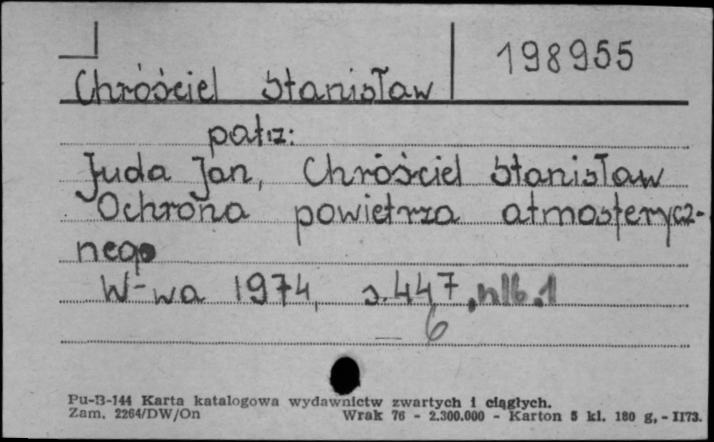 198955
Chróściel Stanisław
patrz:
Juda Jan, Chróściel Stanisław
Ochrona powietrza atmosferycz-
nego
W-wa 1974, s.447, nlb.1
6
Pu-B-144 Karta katalogowa wydawnictw zwartych i ciągłych.
Zam. 2264/DW/On Wrak 76 - 2.300.000 - Karton 5 kl. 180 g, - II73.